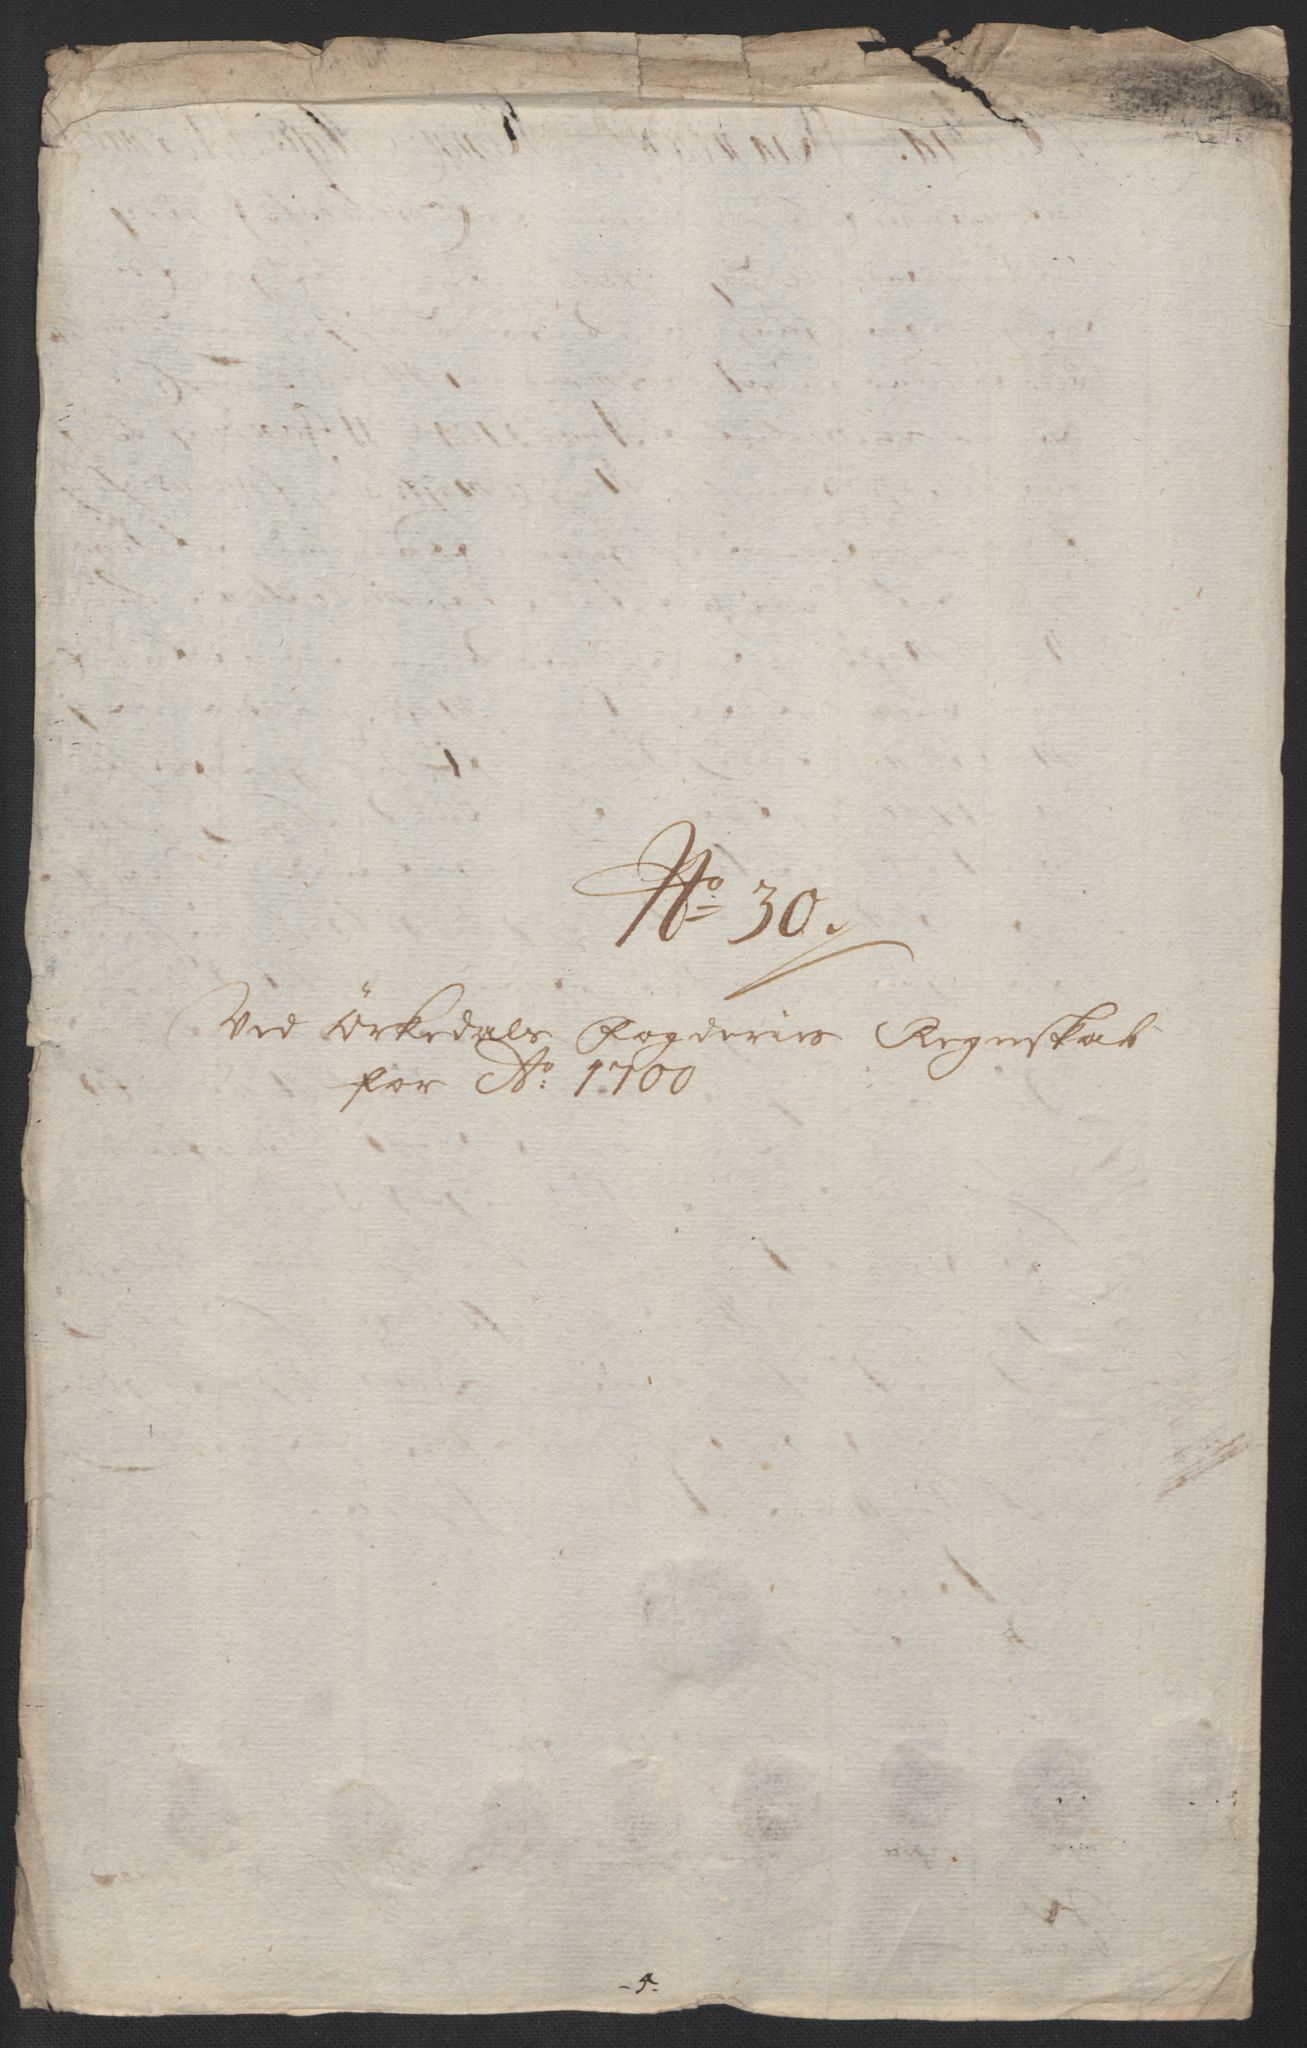 No 30.
Ved Örkedals Fogderies Regnskab
for Ao: 1700